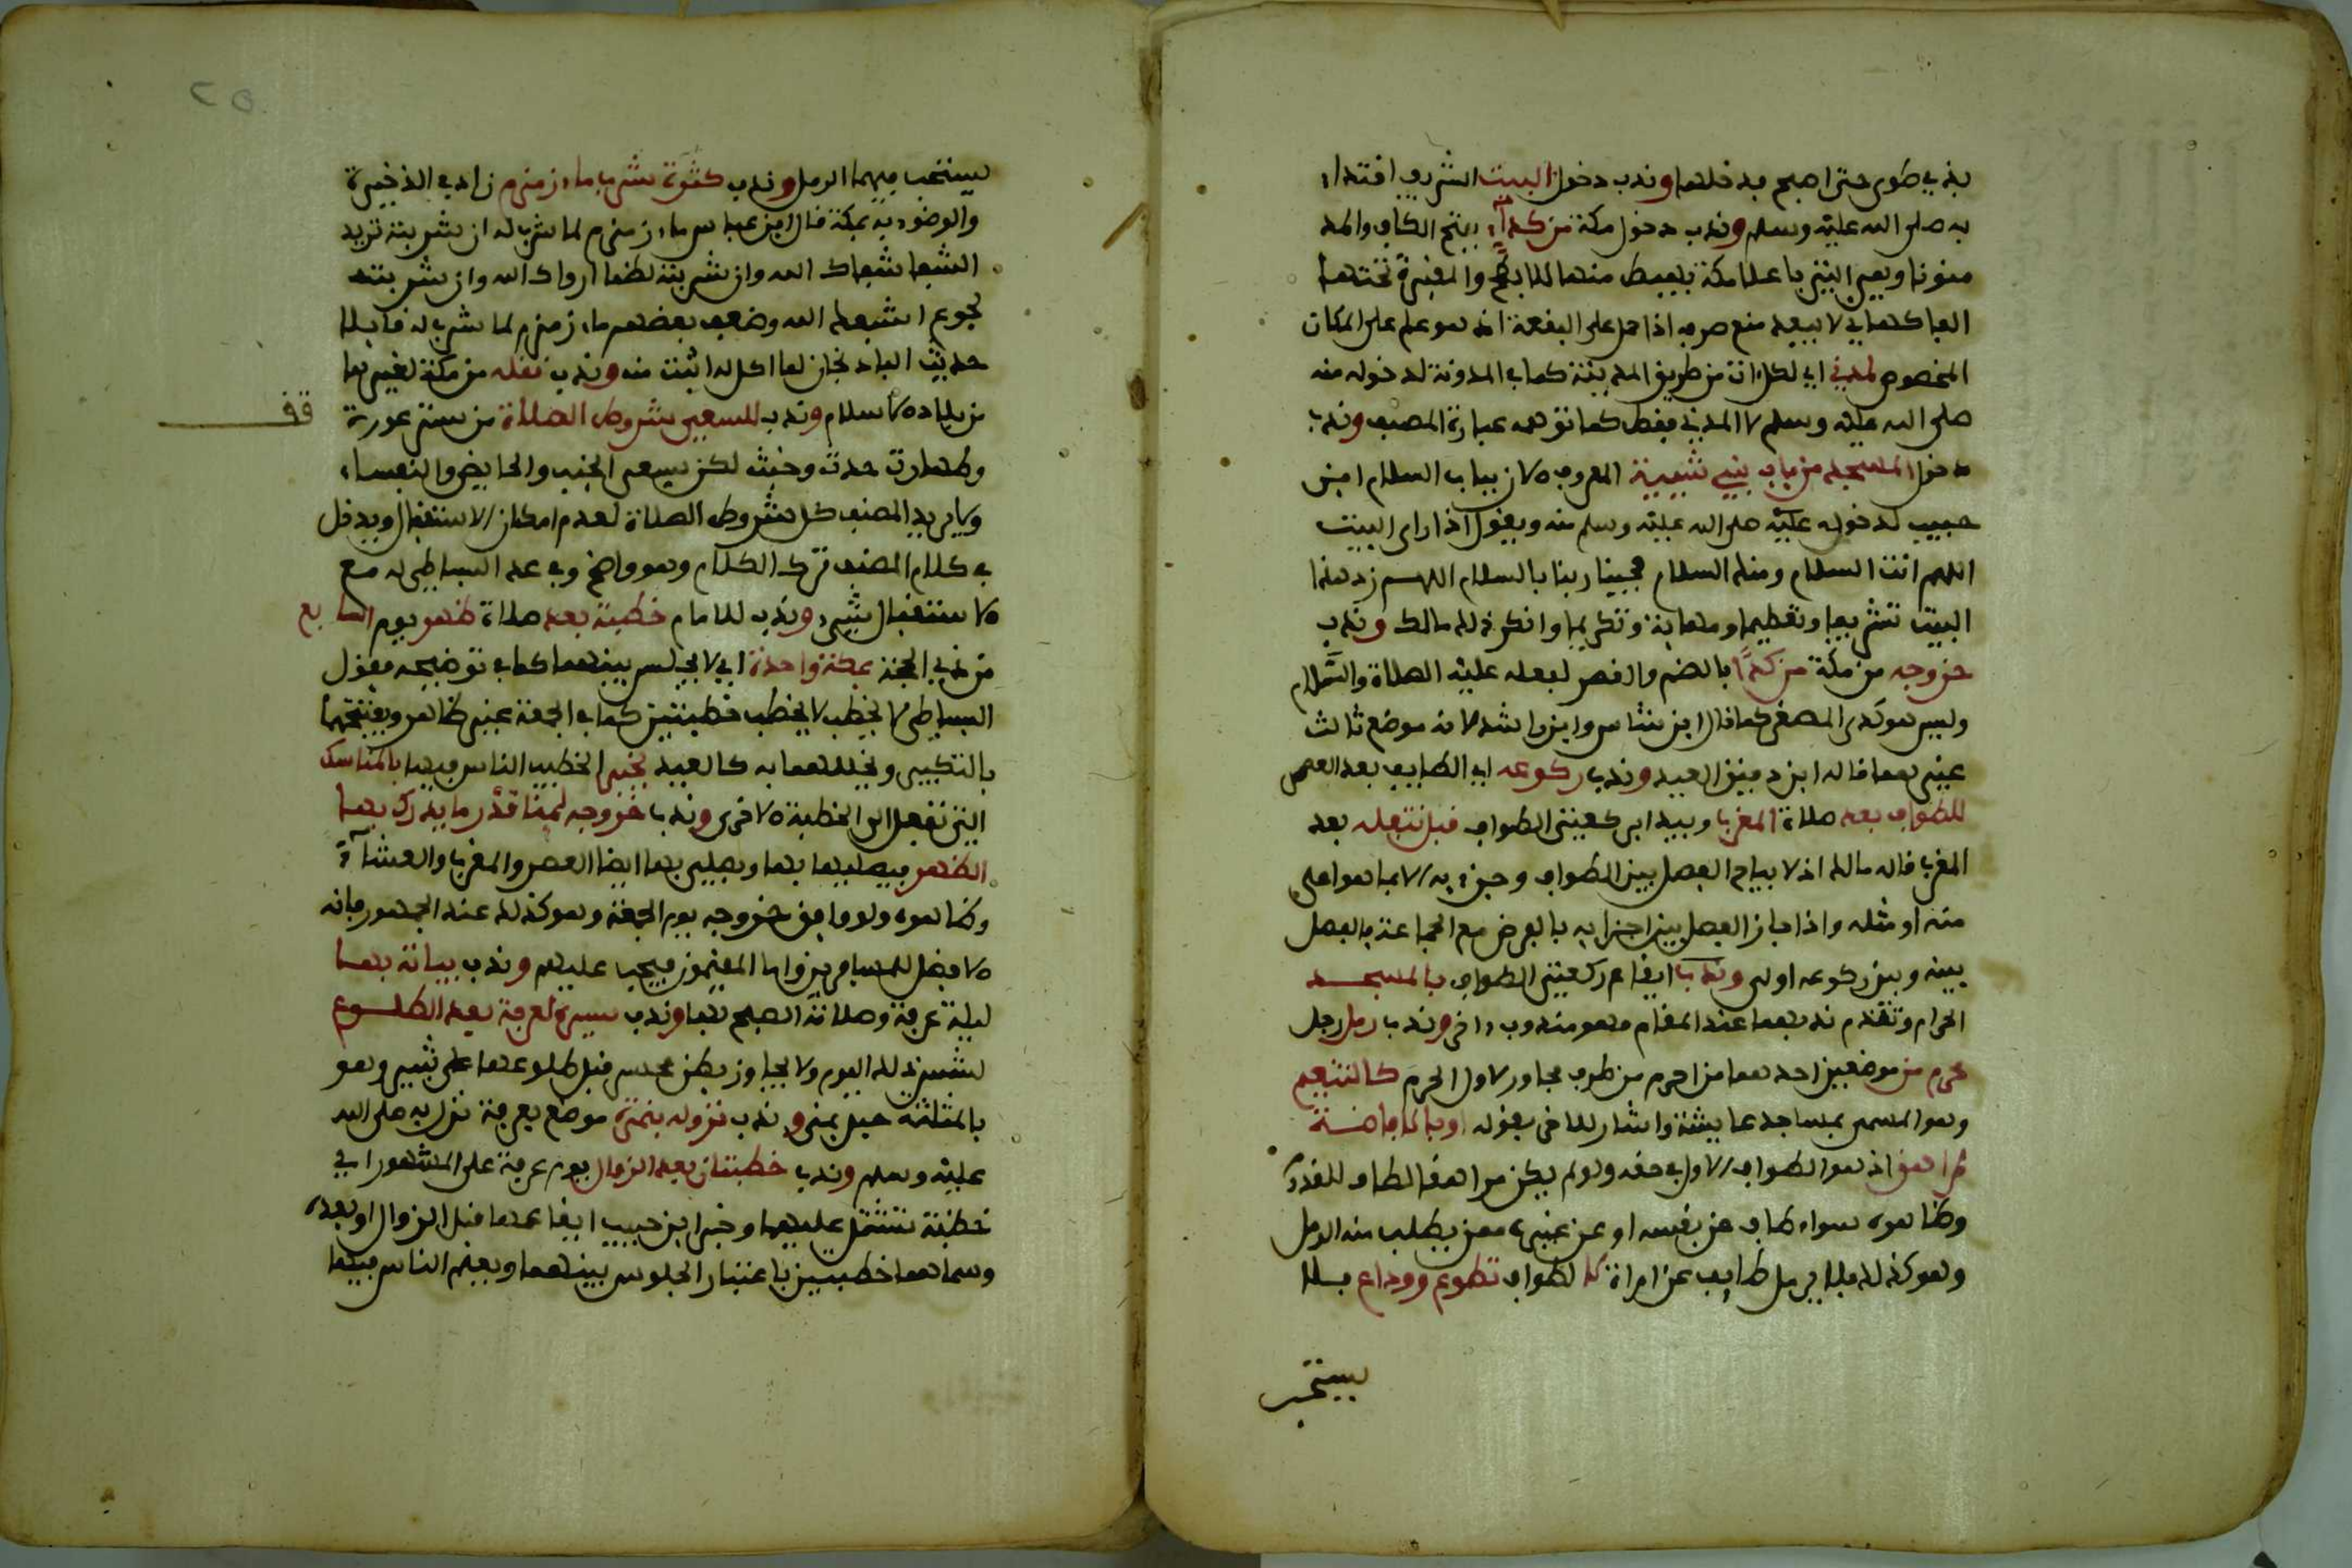 بذي طوى حتى اصبح فدخلها وندب دخول البيت الشريف اقتداء
به صلى الله عليه وسلم وندب دخول مكة من كداء بفتح الكاف والمد
منونا وهي التي باعلا مكة يهبط منها للابطح والمقبرة تحتها
الفاكهاني لا يبعد منع صرفه اذا حمل على البقعة اذ هو علم على المكان
المخصوص لمدني اي لكل ات من طريق المدينة كما في المدونة لدخوله منه
صلى الله عليه وسلم لا المدني فقط كما توهمه عبارة المصنف وندب
دخول المسجد من باب بني شيبة المعروف الان بباب السلام ابن
حبيب لدخوله عليه صلى الله عليه وسلم منه ويقول اذا راى البيت
اللهم انت السلام ومنك السلام فحينا ربنا بالسلام اللهم زد هذا
البيت تشريفا وتعظيما ومهابة وتكريما وانكر ذلك مالك وندب
خروجه من مكة من كدا بالضم والقصر لفعله عليه الصلاة والسلام
وليس هو كدى المصغر كما قال ابن شاس وابن راشد لانه موضع ثالث
غيرهما قاله ابن دقيق العيد وندب ركوعه اي الطايف بعد العصر
للطواف بعد صلاة المغرب ويبدا بركعتي الطواف قبل تنفله بعد
المغرب قاله مالك اذ لا يباح الفصل بين الطواف وجزءيه الا بما هو اعلى
منه او مثله واذا جاز الفصل بين اجزايه بالفرض مع الجماعة فالفصل
بينه وبين ركوعه اولى وندب ايقاع ركعتي الطواف بالمسجد
الحرام وتقدم ندبهما عند المقام فهو مندوب اخر وندب رمل رجل
محرم من موضعين احدهما من احرم من طرف مجاور لاول الحرم كالتنعيم
وهو المسمى بمساجد عايشة واشار للاخر بقوله او بالافاضة
لمراهق اذ هو الطواف الاول في حقه ولو لم يكن مراهقا لطاف للقدوم
وظاهره سواء طاف عن نفسه او عن غيره ممن يطلب منه الرمل
وهو كذلك فلا يرمل طايف عن امراة لا لطواف تطوع ووداع فلا
يستحب
٢٥
يستحب فيهما الرمل وندب كثرة شرب ماء زمزم زاد في الذخيرة
والوضوء به بمكة قال ابن عباس ماء زمزم لما شرب له ان شربته تريد
الشفا شفاك الله وان شربته لظما ارواك الله وان شربته
لجوع اشبعك الله وضعف بعضهم ماء زمزم لما شرب له قايلا
حديث الباذنجان لما اكل له اثبت منه وندب نقله من مكة لغيرها
من بلاد الاسلام وندب للسعي شروط الصلاة من ستر عورة
قف
وطهارة حدث وخبث لكن يسعى الجنب والحايض والنفساء
ولا يريد المصنف كل شروط الصلاة لعدم امكان الاستقبال ويدخل
في كلام المصنف ترك الكلام وهو واضح وفي عد البساطي له مع
الاستقبال شيء وندب للامام خطبة بعد صلاة ظهر يوم السابع
من ذي الحجة بمكة واحدة اي لا يجلس بينهما كما في توضيحه فقول
البساطي لا يخطب خطبتين كما في الجمعة غير ظاهر ويفتتحها
بالتكبير ويخللها به كالعيد يخبر الخطيب الناس فيها بالمناسك
التي تفعل الى الخطبة الاخرى وندب خروجه لمنا قدر ما يدرك بها
الظهر فيصليها بها ويصلي بها ايضا العصر والمغرب والعشاء
وظاهره ولو وافق خروجه يوم الجمعة وهو كذلك عند الجمهور فانه
الافضل للمسافرين واما المقيمون فيجب عليهم وندب بياته بها
ليلة عرفة وصلاته الصبح بها وندب سيره لعرفة بعد الطلوع
لشمس ذلك اليوم ولا يجاوز بطن محسر قبل طلوعها على ثبير وهو
بالمثلثة جبل بمنى وندب نزوله بنمرة موضع بعرفة نزل به صلى الله
عليه وسلم وندب خطبتان بعد الزوال يوم عرفة على المشهور اي
خطبة تشتمل عليهما وخير ابن حبيب ايقاعها قبل الزوال او بعده
وسماهما خطبتين باعتبار الجلوس بينهما ويعلم الناس فيها